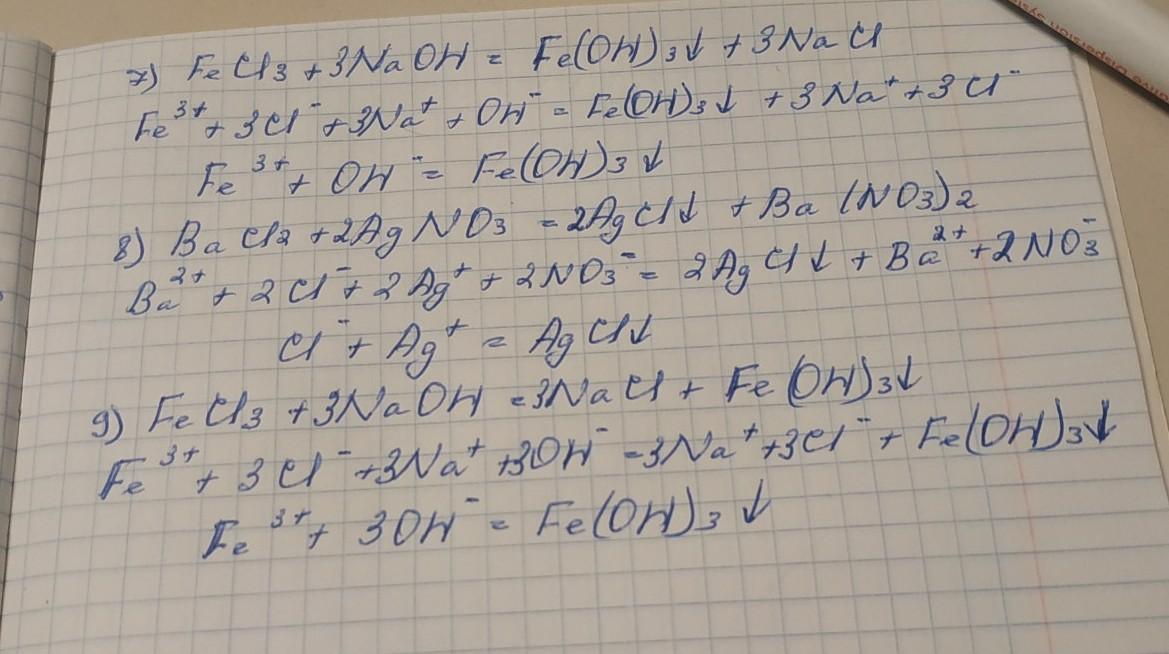 7) FeCl3 + 3NaOH = Fe(OH)3↓ + 3NaCl
Fe³⁺ + 3Cl⁻ + 3Na⁺ + OH⁻ = Fe(OH)3↓ + 3Na⁺ + 3Cl⁻
Fe³⁺ + OH⁻ = Fe(OH)3↓
8) BaCl2 + 2AgNO3 = 2AgCl↓ + Ba(NO3)2
Ba²⁺ + 2Cl⁻ + 2Ag⁺ + 2NO3⁻ = 2AgCl↓ + Ba²⁺ + 2NO3⁻
Cl⁻ + Ag⁺ = AgCl↓
9) FeCl3 + 3NaOH = 3NaCl + Fe(OH)3↓
Fe³⁺ + 3Cl⁻ + 3Na⁺ + 3OH⁻ = 3Na⁺ + 3Cl⁻ + Fe(OH)3↓
Fe³⁺ + 3OH⁻ = Fe(OH)3↓